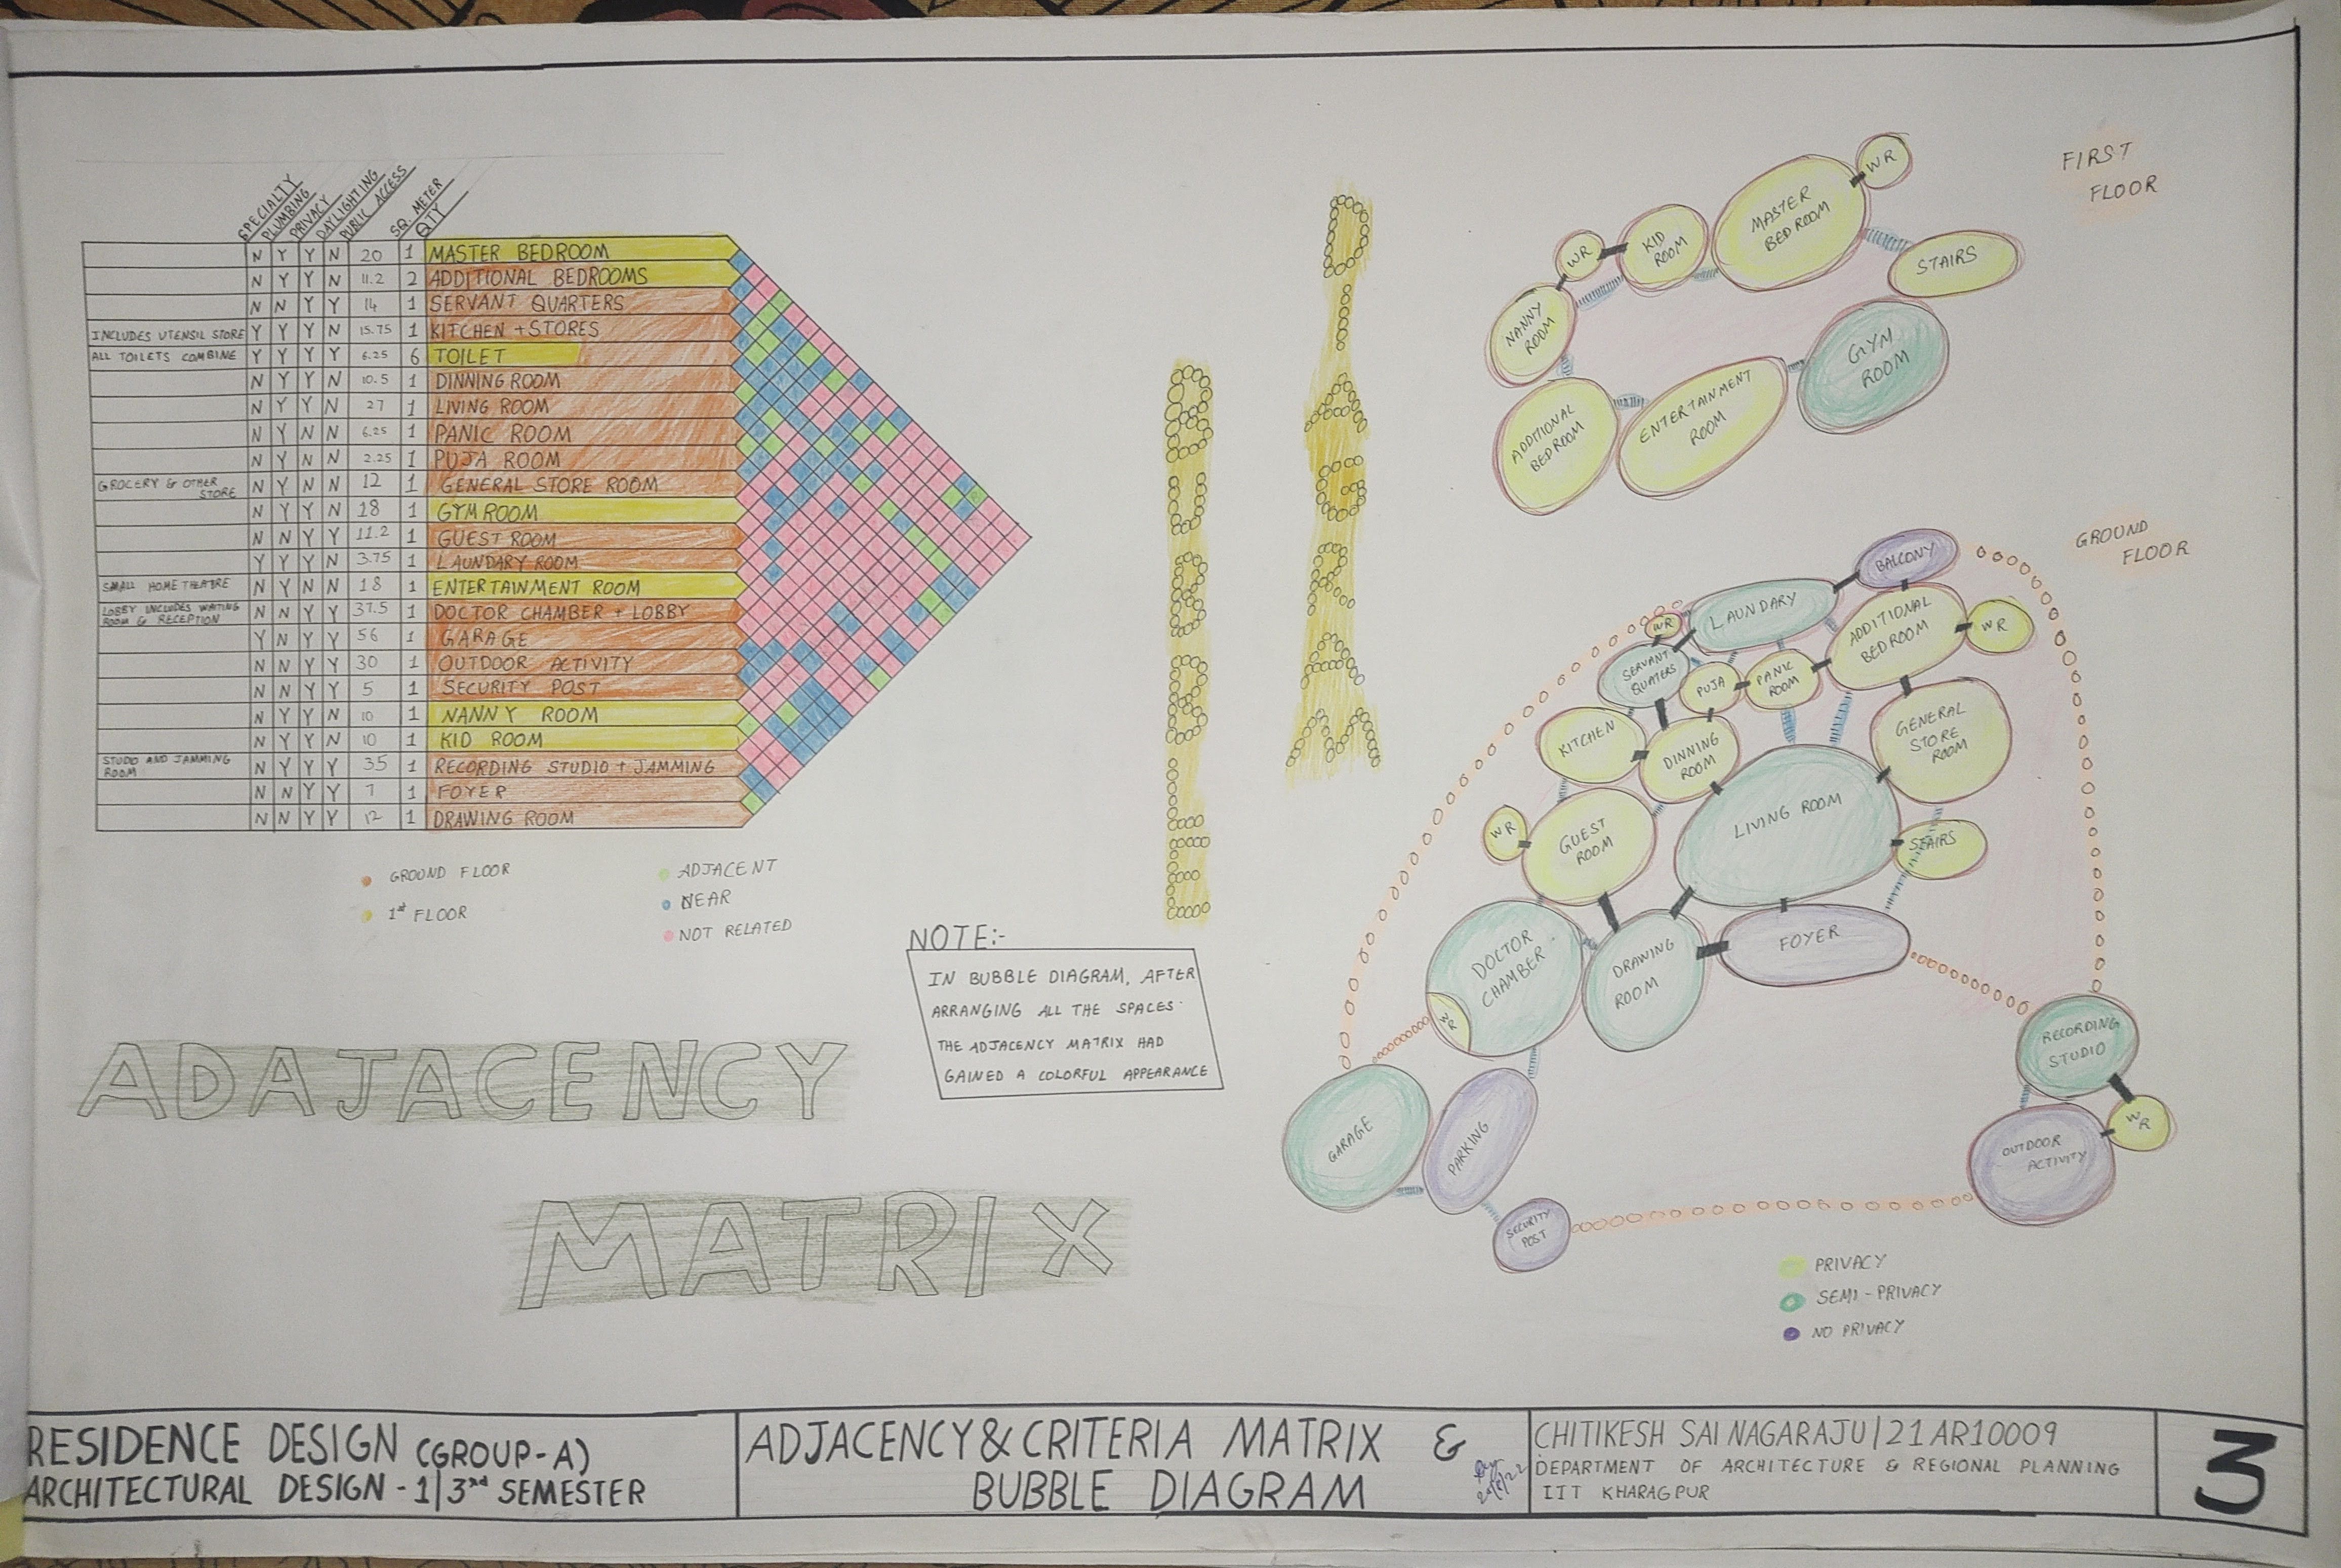 SPECIALTY
PLUMBING
PRIVACY
DAYLIGHTING
PUBLIC ACCESS
SQ. METER
QTY
N Y Y N 20 1 MASTER BEDROOM
N Y Y N 11.2 2 ADDITIONAL BEDROOMS
N N Y Y 14 1 SERVANT QUARTERS
INCLUDES UTENSIL STORE Y Y Y N 15.75 1 KITCHEN + STORES
ALL TOILETS COMBINE Y Y Y Y 6.25 6 TOILET
N Y Y N 10.5 1 DINNING ROOM
N Y Y N 27 1 LIVING ROOM
N Y N N 6.25 1 PANIC ROOM
N Y N N 2.25 1 PUJA ROOM
GROCERY & OTHER STORE N Y N N 12 1 GENERAL STORE ROOM
N Y Y N 18 1 GYM ROOM
N N Y Y 11.2 1 GUEST ROOM
Y Y Y N 3.75 1 LAUNDARY ROOM
SMALL HOME THEATRE N Y N N 18 1 ENTERTAINMENT ROOM
LOBBY INCLUDES WAITING ROOM & RECEPTION N N Y Y 37.5 1 DOCTOR CHAMBER + LOBBY
Y N Y Y 56 1 GARAGE
N N Y Y 30 1 OUTDOOR ACTIVITY
N N Y Y 5 1 SECURITY POST
N Y Y N 10 1 NANNY ROOM
N Y Y N 10 1 KID ROOM
STUDIO AND JAMMING ROOM N Y Y Y 35 1 RECORDING STUDIO + JAMMING
N N Y Y 7 1 FOYER
N N Y Y 12 1 DRAWING ROOM
GROUND FLOOR
1st FLOOR
ADJACENT
NEAR
NOT RELATED
ADAJACENCY
MATRIX
NOTE:-
IN BUBBLE DIAGRAM, AFTER
ARRANGING ALL THE SPACES
THE ADJACENCY MATRIX HAD
GAINED A COLORFUL APPEARANCE
BUBBLE
DIAGRAM
FIRST
FLOOR
WR
MASTER
BEDROOM
KID
ROOM
WR
STAIRS
NANNY
ROOM
GYM
ROOM
ENTERTAINMENT
ROOM
ADDITIONAL
BEDROOM
GROUND
FLOOR
BALCONY
LAUNDARY
WR
ADDITIONAL
BEDROOM
WR
SERVANT
QUATERS
PUJA
PANIC
ROOM
KITCHEN
DINNING
ROOM
GENERAL
STORE
ROOM
LIVING ROOM
WR
GUEST
ROOM
STAIRS
DOCTOR
CHAMBER
WR
DRAWING
ROOM
FOYER
RECORDING
STUDIO
WR
GARAGE
PARKING
OUTDOOR
ACTIVITY
SECURITY
POST
PRIVACY
SEMI-PRIVACY
NO PRIVACY
RESIDENCE DESIGN (GROUP-A)
ARCHITECTURAL DESIGN - 1|3rd SEMESTER
ADJACENCY & CRITERIA MATRIX &
BUBBLE DIAGRAM
CHITIKESH SAI NAGARAJU|21AR10009
DEPARTMENT OF ARCHITECTURE & REGIONAL PLANNING
IIT KHARAGPUR
3